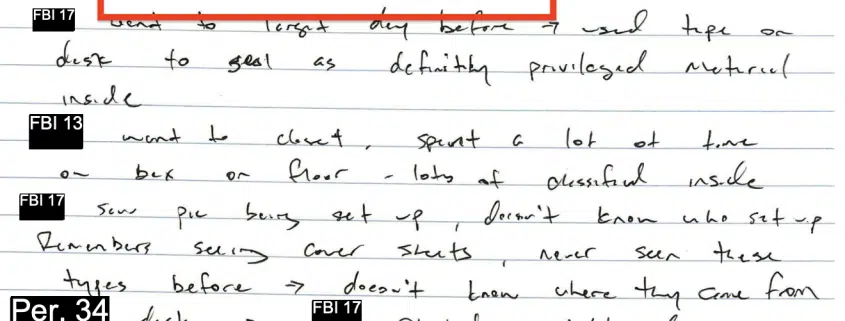 FBI 17 went to target day before → used tape on
desk to seal as definitly privileged material
inside
FBI 13 went to closet, spent a lot of time
on box on floor - lots of classified inside
FBI 17 saw pic being set up, doesn't know who set up
Remembers seeing cover sheets, never seen these
types before → doesn't know where they came from
Per. 34 desk FBI 17